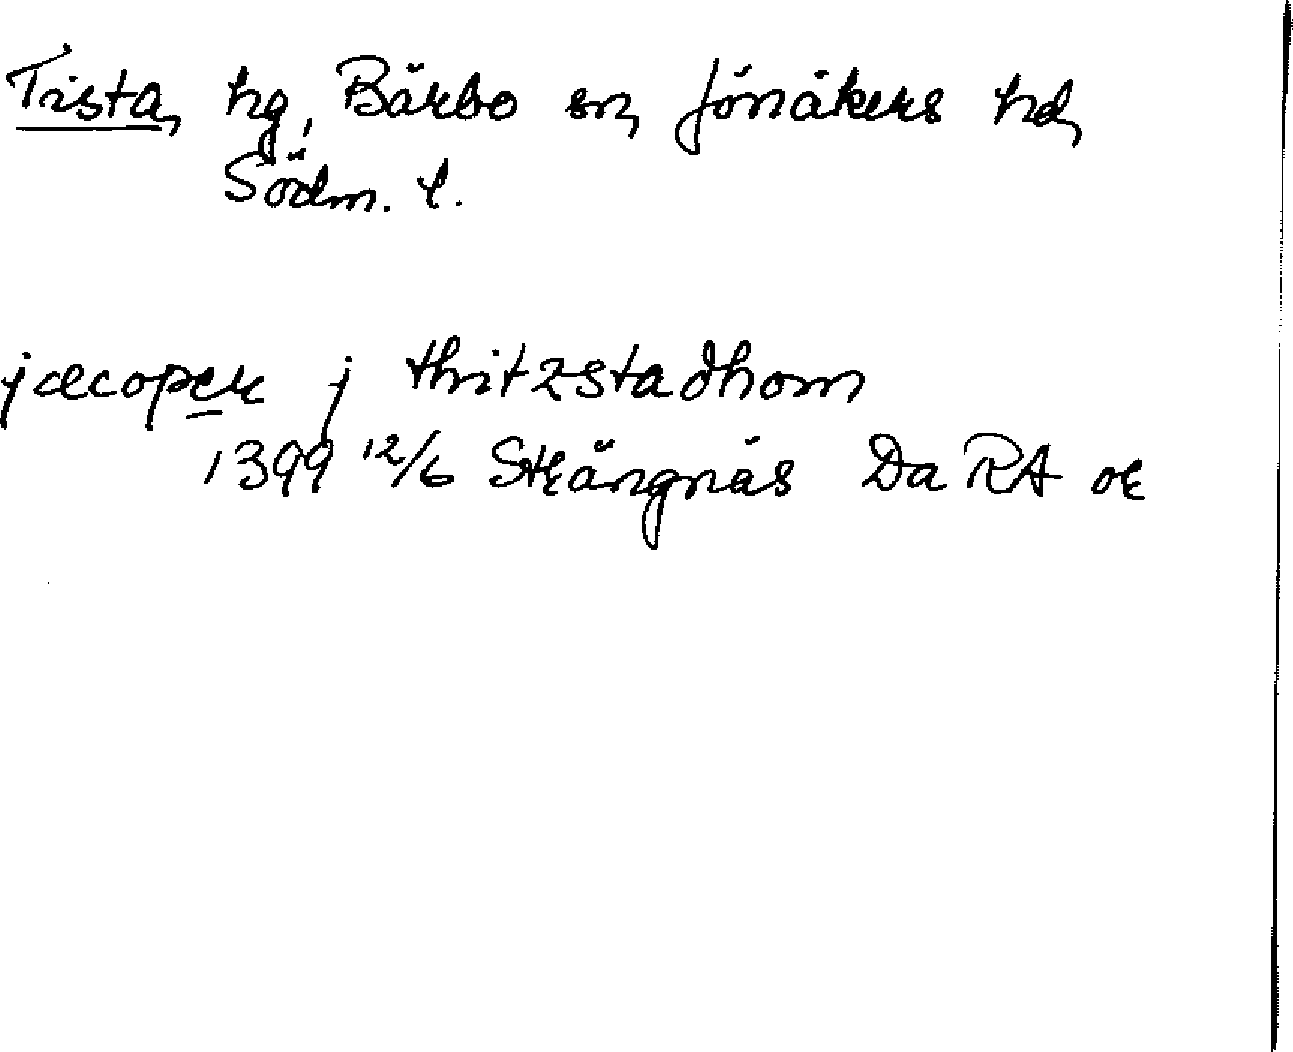 Tista, hg, Bärbo sn, Jönåkers hd,
Södm. l.
jæcoper j thritzstadhom
1399 12/6 Strängnäs Da RA or